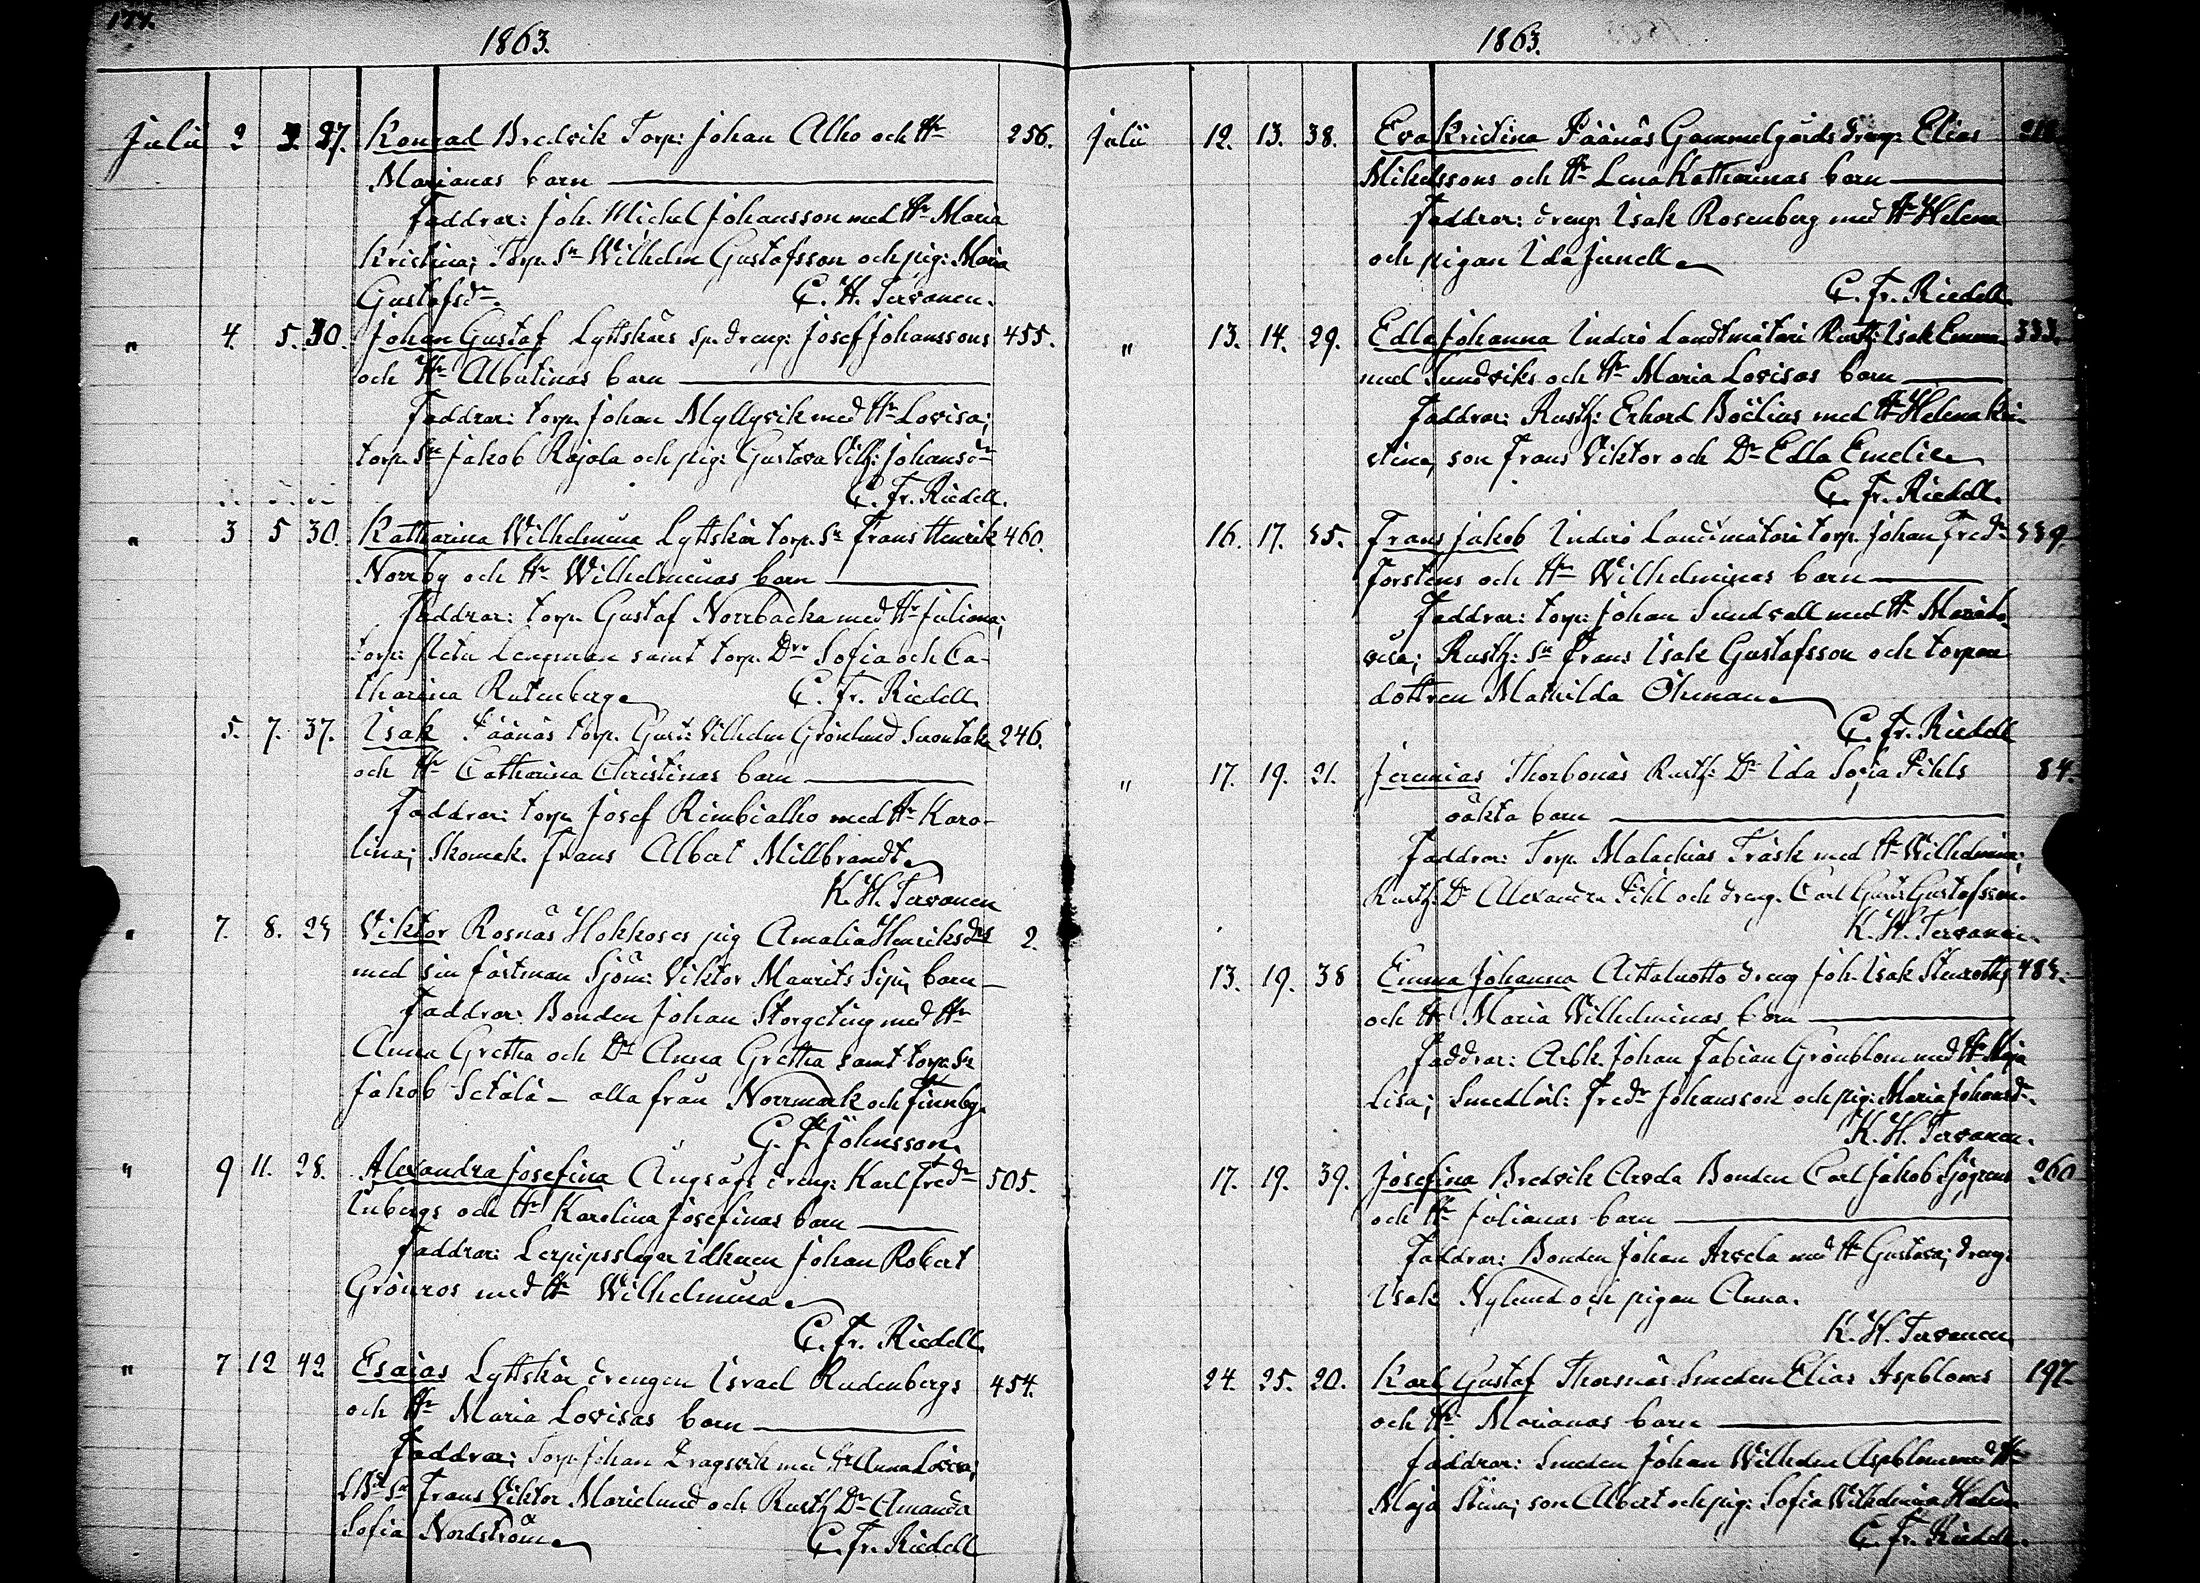 177.
1863.
Julii 2 3 27. Konrad Bredvik Torp: Johan Alho och Hr 256.
Marianas barn
Faddrar: Joh. Michel Johansson med Hr Maria
Kristina; Torp. Sn Wilhelm Gustafsson och pig: Maria
Gustafsdr. C. H. Tervonen.
" 4. 5. 30. Johan Gustaf Lyttskärs Sp. dreng: Josef Johanssons 455.
och Hr Albertinas barn
Faddrar: torp. Johan Myllyvik med Hr Lovisa;
torp. Sn Jakob Rajala och pig: Gustava Vilh: Johansdr
C. Fr. Riedell.
" 3 5 30. Katharina Wilhelmina Lyttskär torp. Sn Frans Henrik 460.
Norrby och Hr Wilhelminas barn
Faddrar: torp. Gustaf Norrbacka med Hr Juliana;
torp: Lengman samt torp. Drr Sofia och Ca-
tharina Rutenberg C. Fr. Riedell
5. 7. 37. Isak Påånäs torp. Gust: Vilhelm Grönlund Suontaka 246.
och Hr Catharina Christinas barn
Faddrar: torp. Josef Rimbialho med Hr Karo-
lina; Skomak. Frans Albert Millbrandt
K. H. Tervonen
" 7. 8. 25 Viktor Rosnäs Hokkoses pig Amalia Henriksdrs 2.
med sin fästman Sjöm: Viktor Maurits barn
Faddrar: Bonden Johan Storgeting med Hr
Anna Gretha och Dr Anna Gretha samt torp. Sn
Jakob Setälä – alla från Norrmark och Finnby.
G. F. Johnsson.
" 9 11. 28. Alexandra Josefina Ängsöfs dreng: Karl Fredr 505.
Enbergs och Hr Karolina Josefinas barn
Faddrar: Lerpipsslagar idkaren Johan Robert
Grönros med Hr Wilhelmina
C. Fr. Riedell.
" 7 12 42 Esaias Lyttskär drengen Israel Rudenbergs 454.
och Hr Maria Lovisas barn
Faddrar: Torp. Johan Dragsvik med Hr Anna Lovisa;
Sn Frans Viktor Marielund och Rusth. Dr Amanda
Sofia Nordström C. Fr. Riedell
1863.
Julii 12. 13. 38. Eva Kristina Påånäs Gammelgårds dreng: Elias
Mihelssons och Hr Lena Katharinas barn
Faddrar: dreng. Isak Rosenberg med Hr Helena
och pigan Ida Junell
C. Fr. Riedell.
" 13. 14. 29. Edla Johanna Inderö Landtmäteri Rusth: Isak Emma- 333.
nuel Sundviks och Hr Maria Lovisas barn
Faddrar: Rusth: Erhard Böëlius med Hr Helena Kri-
stina, son Frans Viktor och Dr Edla Emelie
C. Fr. Riedell.
16. 17. 35. Frans Jakob Inderö Landtmäteri torp. Johan Fredr 339.
Forstens och Hr Wilhelminas barn
Faddrar: torp: Johan Sundvall med Hr Maria Lo-
visa; Rusth: Sn Frans Isak Gustafsson och torpare
dottren Mathilda Öhman
C. Fr. Riedell
" 17. 19. 21. Jeremias Thorbonäs Rusth: Dr Ida Sofia Pihls 84.
oäkta barn
Faddrar: Torp. Malachias Träsk med Hr Wilhelmina;
Rusth. Dr Alexandra Pihl och dreng. Carl Gust: Gustafsson.
K. H. Tervonen.
13. 19. 38 Emma Johanna Aittaluotto dreng Joh. Isak Stenroths 485.
och Hr Maria Wilhelminas barn
Faddrar: Arbk. Johan Fabian Grönblom med Hr Maja
Lisa; Smedlärl: Fredr Johansson och pig: Maria Johansdr.
K. H. Tervonen.
17. 19. 39. Josefina Bredvik Arvela Bonden Carl Jakob Sjögrens 260
och Hr Julianas barn
Faddrar: Bonden Johan Arvela med Hr Gustava; dreng:
Isak Nylund och pigan Anna.
K. H. Tervonen
24. 25. 20. Karl Gustaf Thorsnäs Smeden Elias Aspbloms 197
och Hr Marianas barn
Faddrar: Smeden Johan Wilhelm Aspblom med Hr
Maja Stina; son Albert och pig: Sofia Wilhelmina
C. Fr. Riedell.